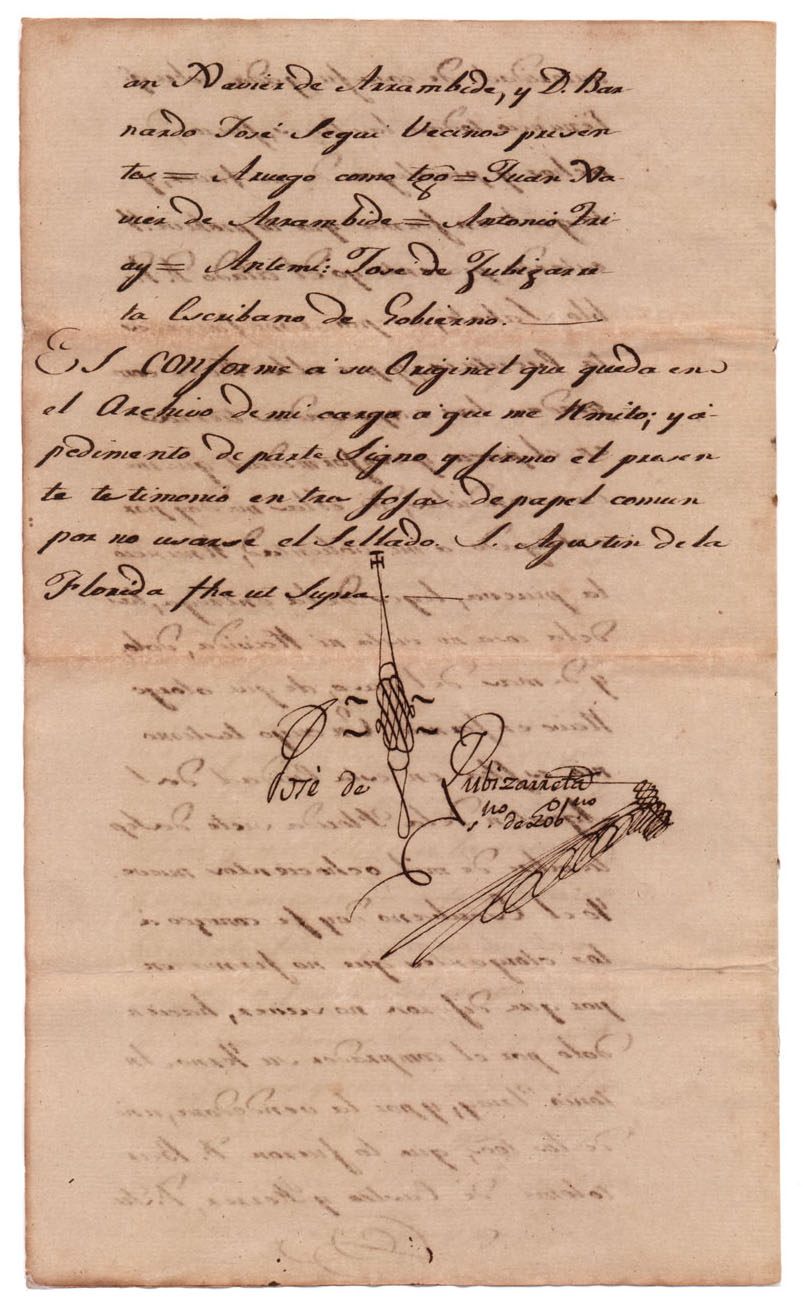 an Xavier de Arrambide, y D. Bar-
nardo José Segui Vecinos presen-
tes = Aruego como tgo = Juan Xa-
vier de Arrambide = Antonio Tri-
ay = Antemi: José de Zubizarre-
ta Escribano de Gobierno.
Es conforme á su Original que queda en
el Archivo de mi cargo á que me Rmito; y á-
pedimento de parte Signo y firmo el presen
te testimonio en tres fojas de papel comun
por no usarse el Sellado. S. Agustin de la
Florida fha ut Supra.
José de Zubizarreta
sno. de Gobno